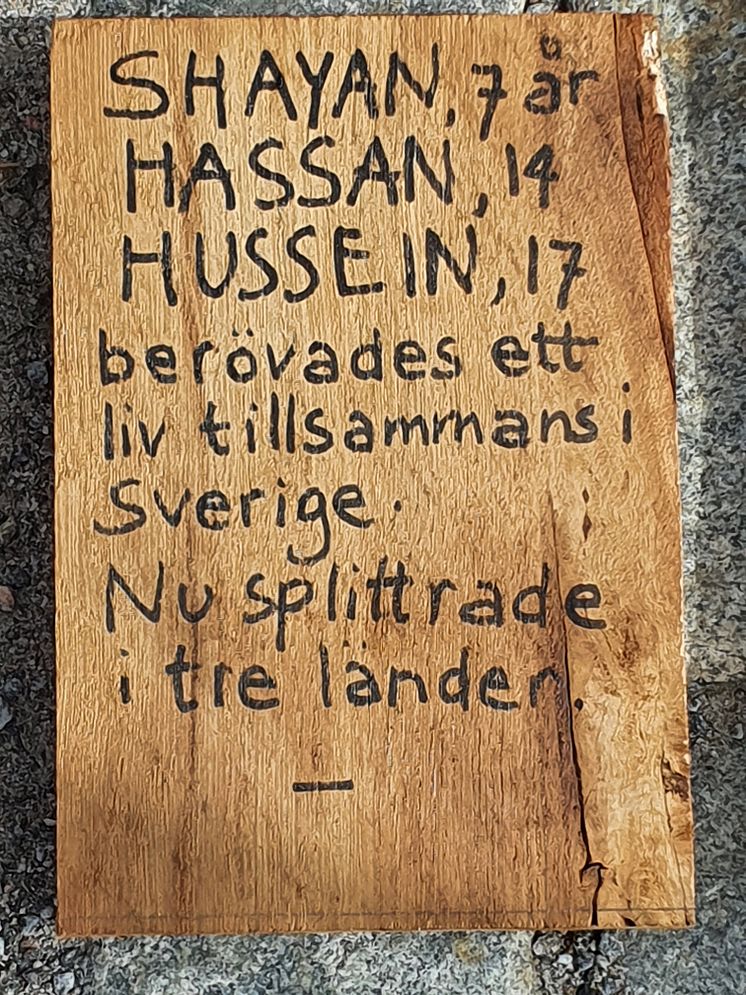 SHAYAN, 7 år
HASSAN, 14
HUSSEIN, 17
berövades ett
liv tillsammans i
Sverige.
Nu splittrade
i tre länder.
—